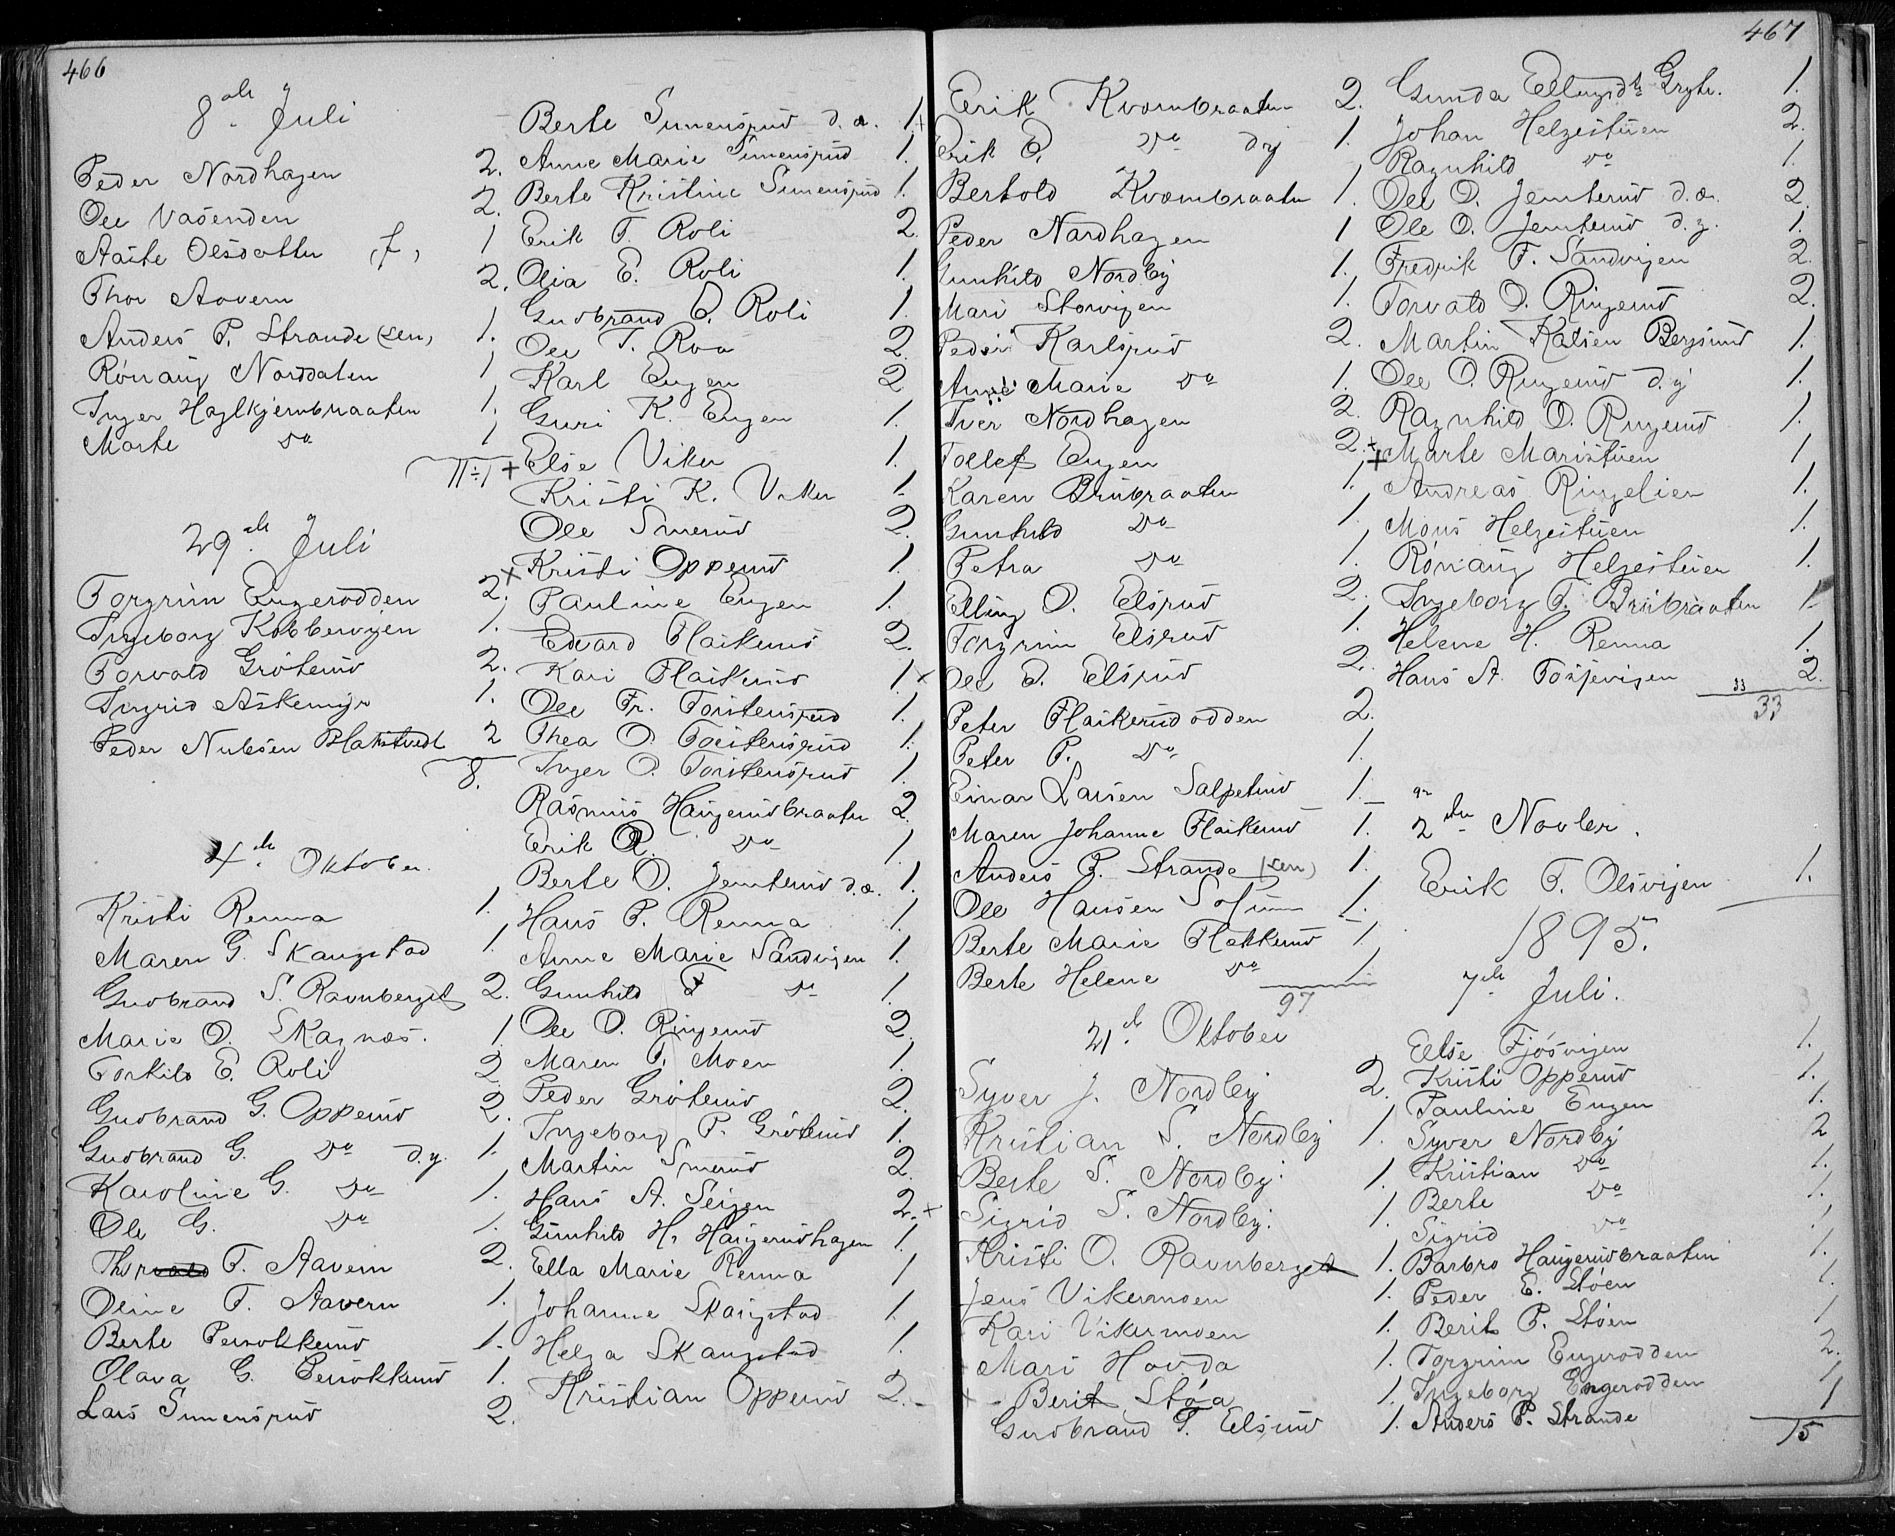 466
8de Juli
Peder Nordhagen 2.
Ole Vasenden 2.
Aaste Olsdatter f, 1
Thor Aavern 2.
Anders P. Strande (sen, 1.
Rønnaug Norddalen 1
Inger Haglkjernbraaten 1.
Marte do 1
11÷1
29de Juli
Torgrim Engerodden 2.
Ingeborg Kobbervigen 1.
Torvald Grøterud 2.
Ingrid Askemyr 1.
Peder Nubsen Blakstvedt 2
8.
4de Oktober.
Kristi Renna 1.
Maren G. Skaugstad 1.
Gudbrand S. Ravnberget 2.
Marie O. Skagnæs. 1.
Torkild E. Roli 2.
Gudbrand G. Opperud 2.
Gudbrand G. do d.y. 1.
Karoline G. do 1.
Ole G. do 1.
Thor T. Aavern 2.
Oline T. Aavern 1.
Berte Persokkerud 1.
Olava G. Persokkerud 1.
Lars Simensrud 2.
Berte Simensrud d.æ. 1+
Anne Marie Simensrud 1.
Berte Kristine Simensrud 1.
Erik T. Roli 2.
Olia E. Roli 1.
Gudbrand E. Roli 1.
Ole T. Roa 2.
Karl Eugen 2
Guri K. Eugen 1.
+ Else Viker 1.
Kristi K. Viker 1.
Ole Smerud 2.
Kristi Opperud 1.
+ Pauline Eugen 1.
Edvard Flaskerud 2.
Kari Flaskerud 1.+
Ole Fr. Torstensrud 1.
Thea O. Torstensrud 1.
Inger O. Torstensrud 1.
Rasmus Haugerudbraaten 2.
Erik R. do 1.
Berte O. Jemterud d.æ. 1.
Hans P. Renna 1.
Anne Marie Sandvigen 1.
Gunhild F do 1.
Ole O. Ringerud 2.
Maren P. Moen 1.
Peder Grøterud 2.
Ingeborg P. Grøterud 1.
Martin Smerud 2.
Hans A. Seigen 2.+
Gunhild H. Haugerudhagen 1.
Ella Marie Renna 1
Johanne Skaugstad 1.
Helga Skaugstad 1.
Kristian Opperud 2.
467
Erik Kvernbraaten 2.
Erik E. do dy 1.
Bertold Kvernbraaten 1.
Peder Nordhagen 1
Gunhild Nordby 1.
Mari Storvigen 1.
Peder Karlsrud 2.
Anne Marie do 1.
Iver Nordhagen 2.
Tollef Eugen 2.+
Karen Brubraaten 1.
Gunhild do 1.
Petra do 1.
Elling O. Elsrud 2.
Torgrim Elsrud 1.
Ole E. Elsrud 2.
Peter Flaskerudodden 2.
Peter P. do 1.
Einar Larsen Salpeterud 1.
Maren Johanne Flaskerud 1.
Anders P. Strande (sen) 1.
Ole Hansen 1.
Berte Marie Flakkerud 1.
Berte Helene do 1.
97
21de Oktober
Syver J. Nordby 2.
Kristian S. Nordby 1.
Berte S. Nordby. 1.
Sigrid S. Nordby. 1.
Kristi O. Ravnberget 1.
Jens Vikermoen 1.
Kari Vikermoen 1.
Mari Hovda 1.
+ Berit Støa 1.
Gudbrand T. Elsrud 1.
Gunda Ellingsdtr Gryte. 1.
Johan Helgestuen 2.
Ragnhild do 1.
Ole O. Jemterud d.æ. 2.
Ole O. Jemterud d.y. 1.
Fredrik F. Sandvigen 2.
Torvald O. Ringerud 2.
Martin Kalsen Bergsund 1.
Ole O. Ringerud d.y 1.
Ragnhild O. Ringerud 1.
+ Marte Maristuen 1
Andreas Ringelien 1.
Mons Helgestuen 1.
Rønnaug Helgestuen 1.
Ingeborg T. Brubraaten 1.
Helene H. Renna 1.
Hans A. Tosjevigen 2.
33
33
2den Novbr.
Erik T. Olsvigen 1.
1895.
7de Juli.
Else Fjøsvigen 1.
Kristi Opperud 1.
Pauline Eugen 1.
Syver Nordby 2
Kristian do 1.
Berte do 1.
Sigrid do 1.
Barbro Haugerudbraaten 1.
Peder E. Støen 1.
Berit P. Støen 1
Torgrim Engerodden 2.
Ingeborg Engerodden 1
Anders P. Strande 1
15